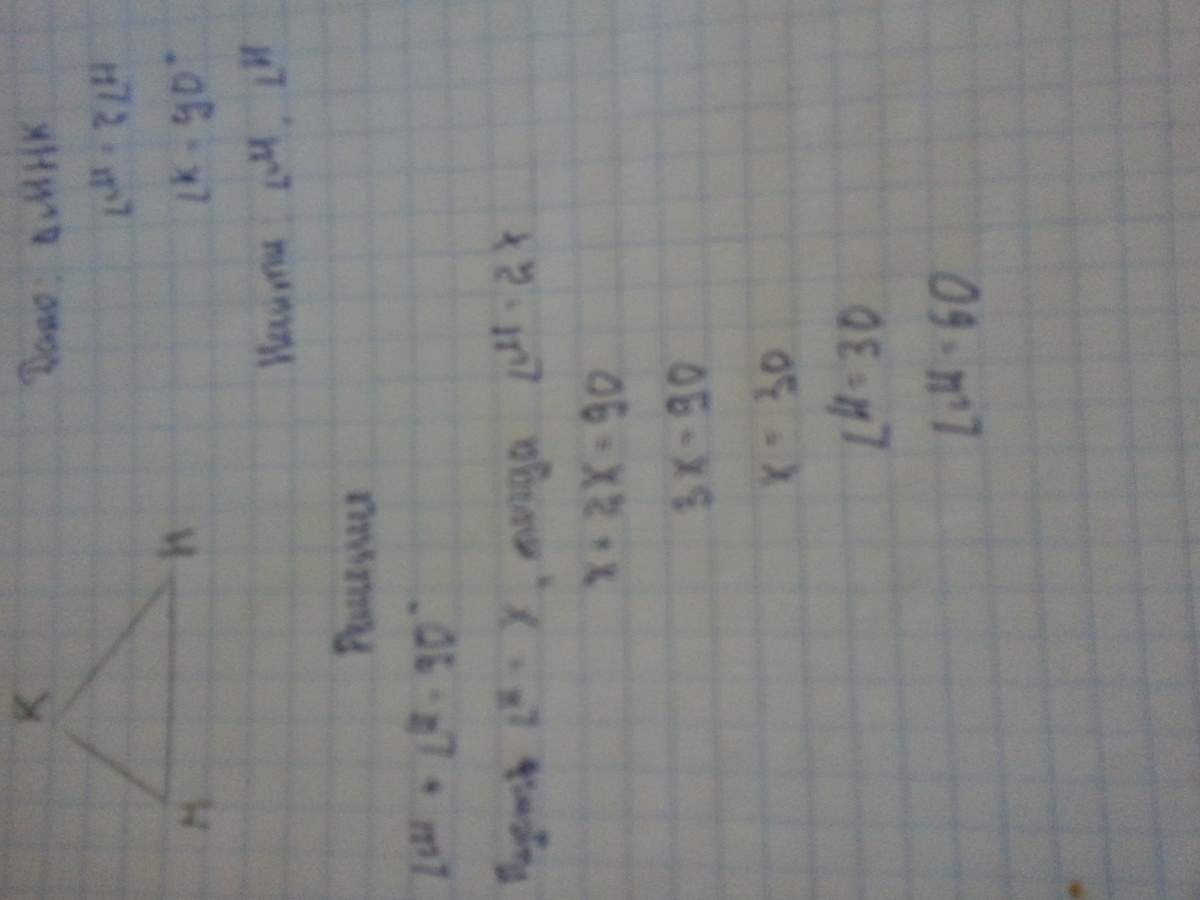 K
M
H
Дано: ΔМНК
∠М = 2∠Н
∠К = 90°
Найти: ∠М, ∠Н
Решение
∠М + ∠Н = 90°
Пусть ∠Н = х, тогда ∠М = 2х
х + 2х = 90
3х = 90
х = 30
∠Н = 30
∠М = 60